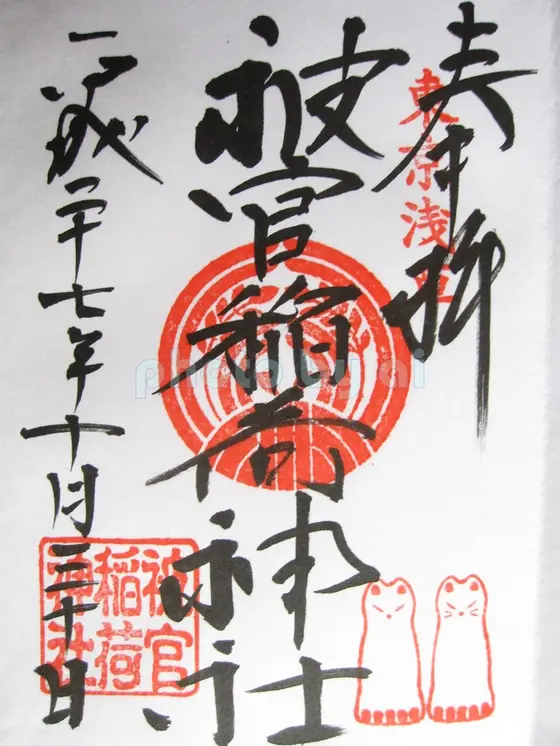 奉拝
東京浅草
被官稲荷神社
平成二十七年十月三十日
被官
稲荷
神社
photo by ai